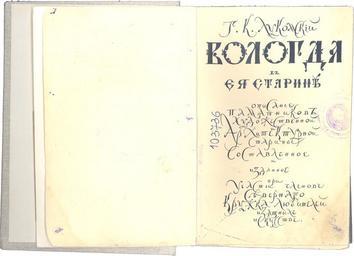 Г. К. Лукомскій
ВОЛОГДА
въ
ЕЯ СТАРИНѢ
описаніе
Памятниковъ
Художественной
и Архитектурной
Старины
Составленное
и изданное
при
Участіи членовъ
Сѣвернаго
Кружка Любителей
изящныхъ
искусствъ
103736